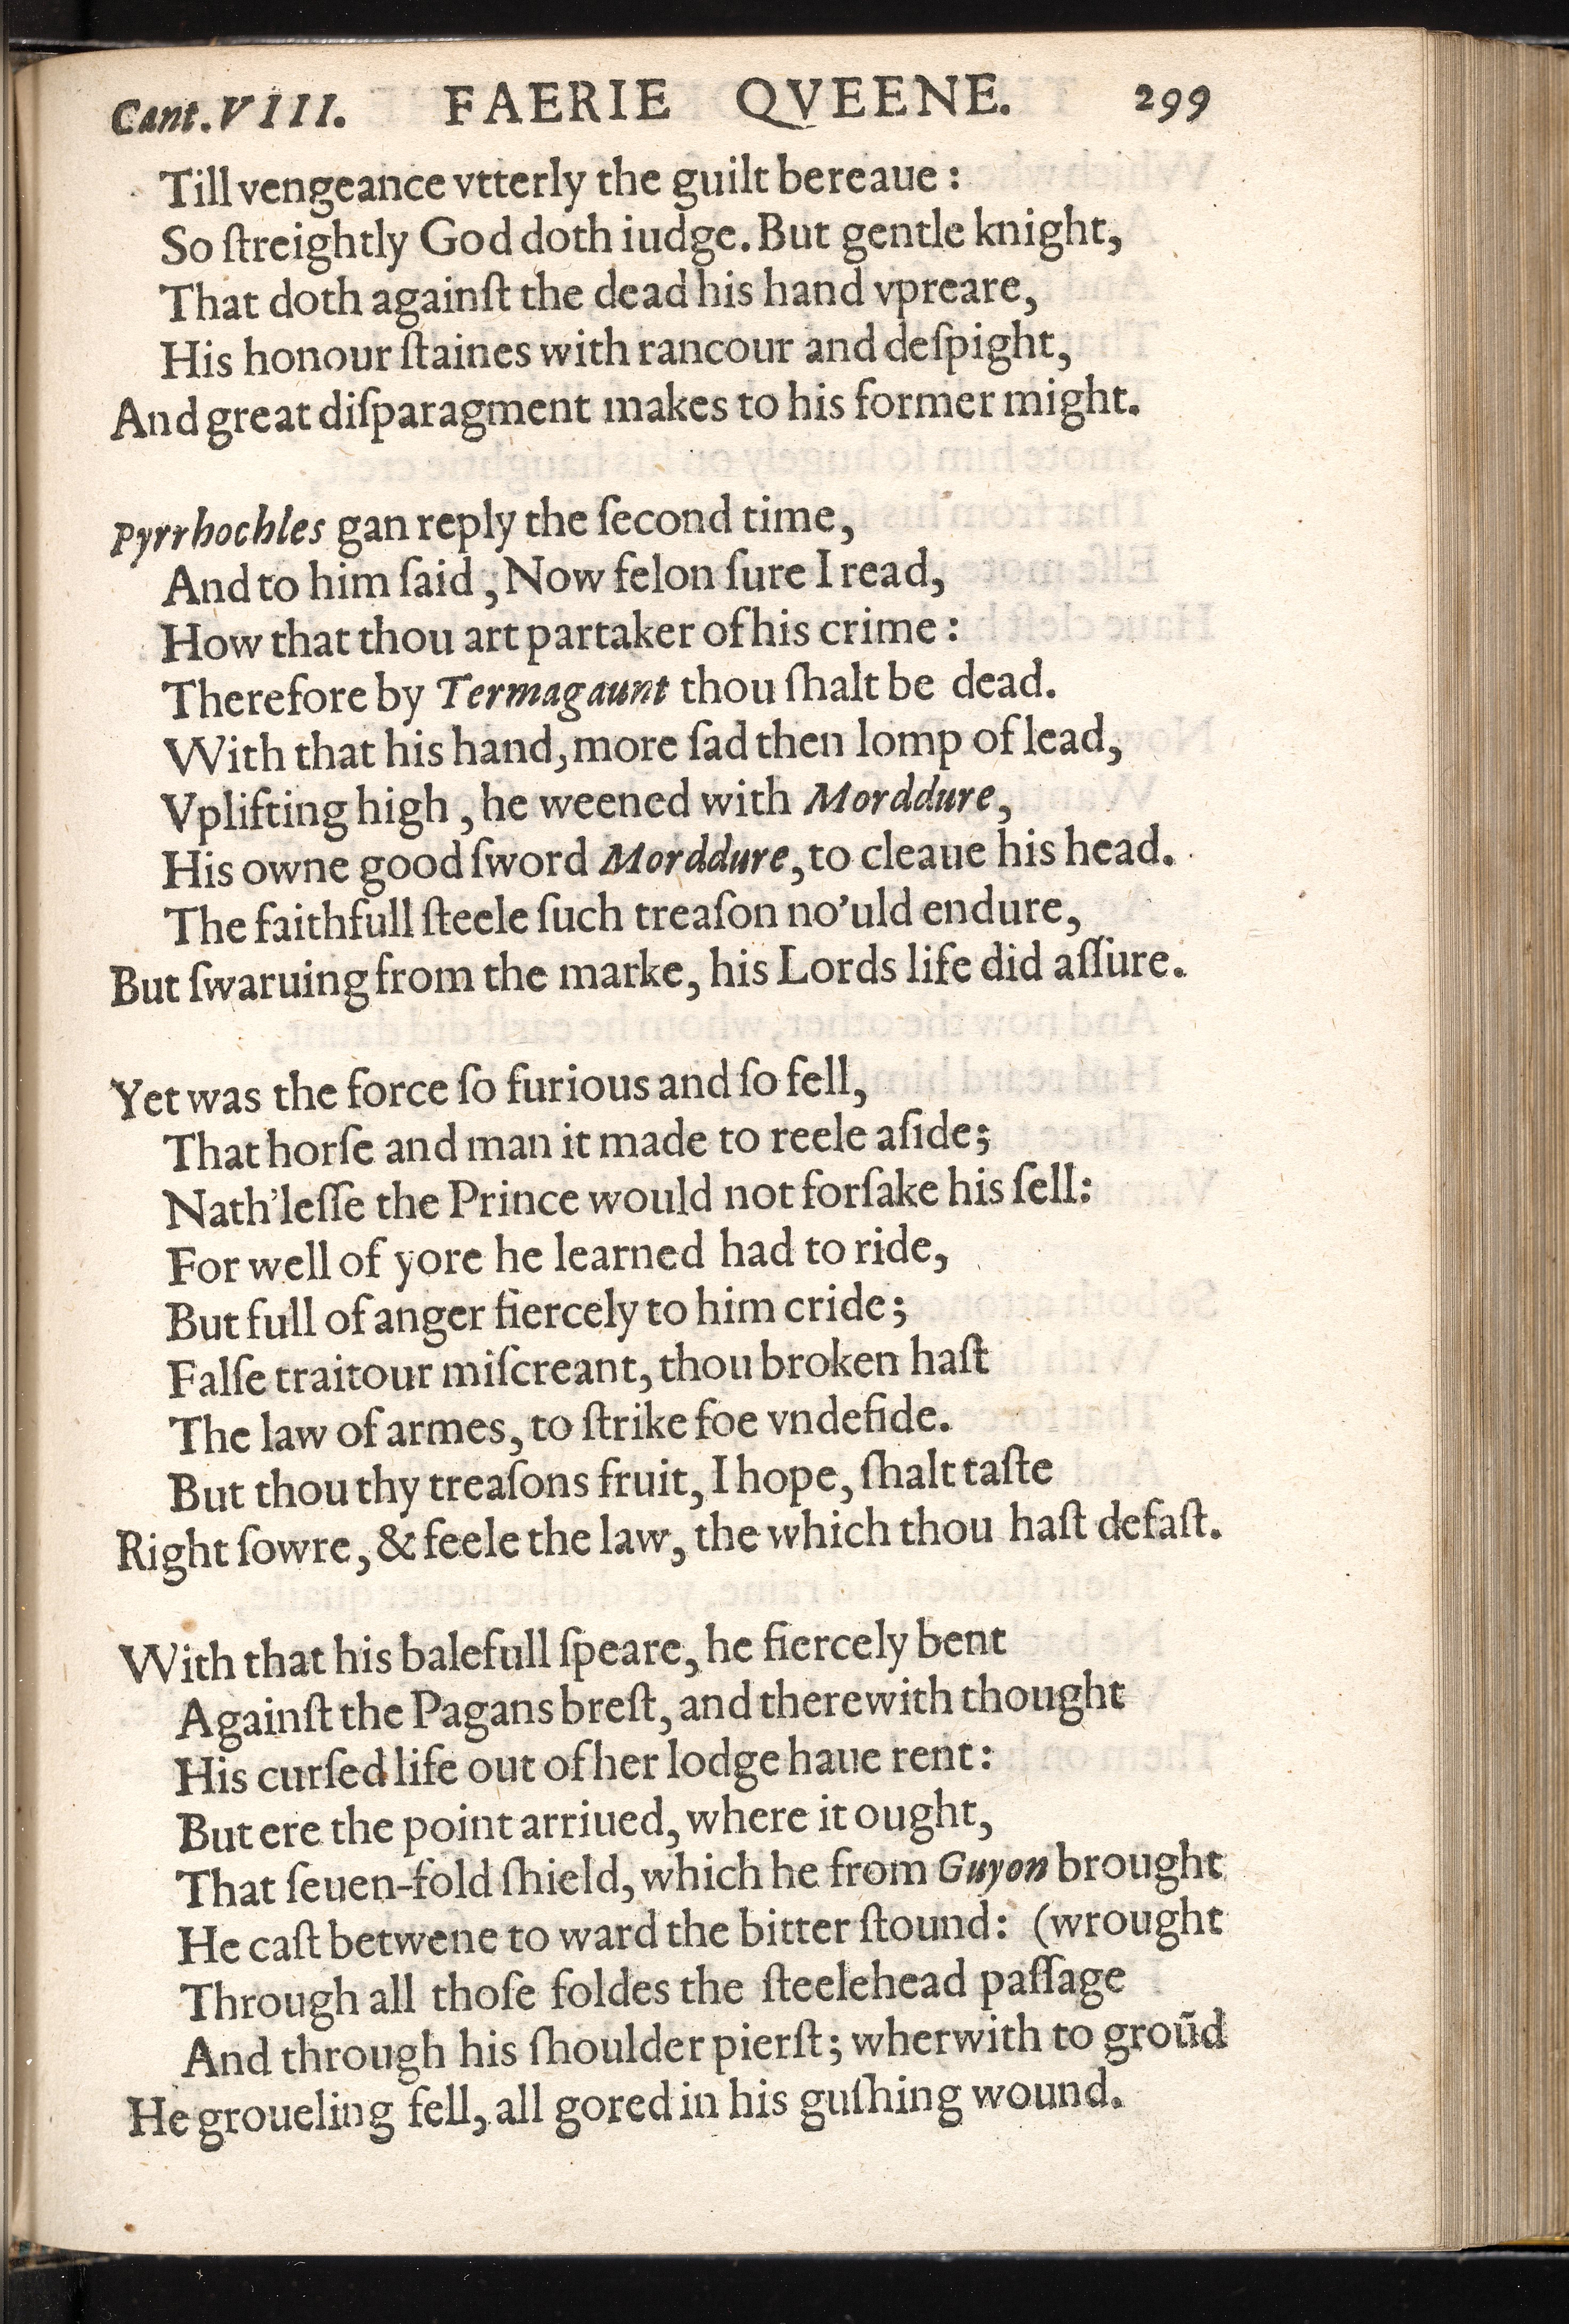 Cant. VIII. FAERIE QVEENE. 299
Till vengeance vtterly the guilt bereaue:
So ſtreightly God doth iudge. But gentle knight,
That doth againſt the dead his hand vpreare,
His honour ſtaines with rancour and deſpight,
And great diſparagment makes to his former might.
Pyrrhochles gan reply the ſecond time,
And to him ſaid, Now felon ſure I read,
How that thou art partaker of his crime:
Therefore by Termagaunt thou ſhalt be dead.
With that his hand, more ſad then lomp of lead,
Vplifting high, he weened with Morddure,
His owne good ſword Morddure, to cleaue his head.
The faithfull ſteele ſuch treaſon no'uld endure,
But ſwaruing from the marke, his Lords life did aſſure.
Yet was the force ſo furious and ſo fell,
That horſe and man it made to reele aſide;
Nath'leſſe the Prince would not forſake his ſell:
For well of yore he learned had to ride,
But full of anger fiercely to him cride;
Falſe traitour miſcreant, thou broken haſt
The law of armes, to ſtrike foe vndefide.
But thou thy treaſons fruit, I hope, ſhalt taſte
Right ſowre, & feele the law, the which thou haſt defaſt.
With that his balefull ſpeare, he fiercely bent
Againſt the Pagans breſt, and therewith thought
His curſed life out of her lodge haue rent:
But ere the point arriued, where it ought,
That ſeuen-fold ſhield, which he from Guyon brought
He caſt betwene to ward the bitter ſtound: (wrought
Through all thoſe foldes the ſteelehead paſſage
And through his ſhoulder pierſt; wherwith to groũd
He groueling fell, all gored in his guſhing wound.